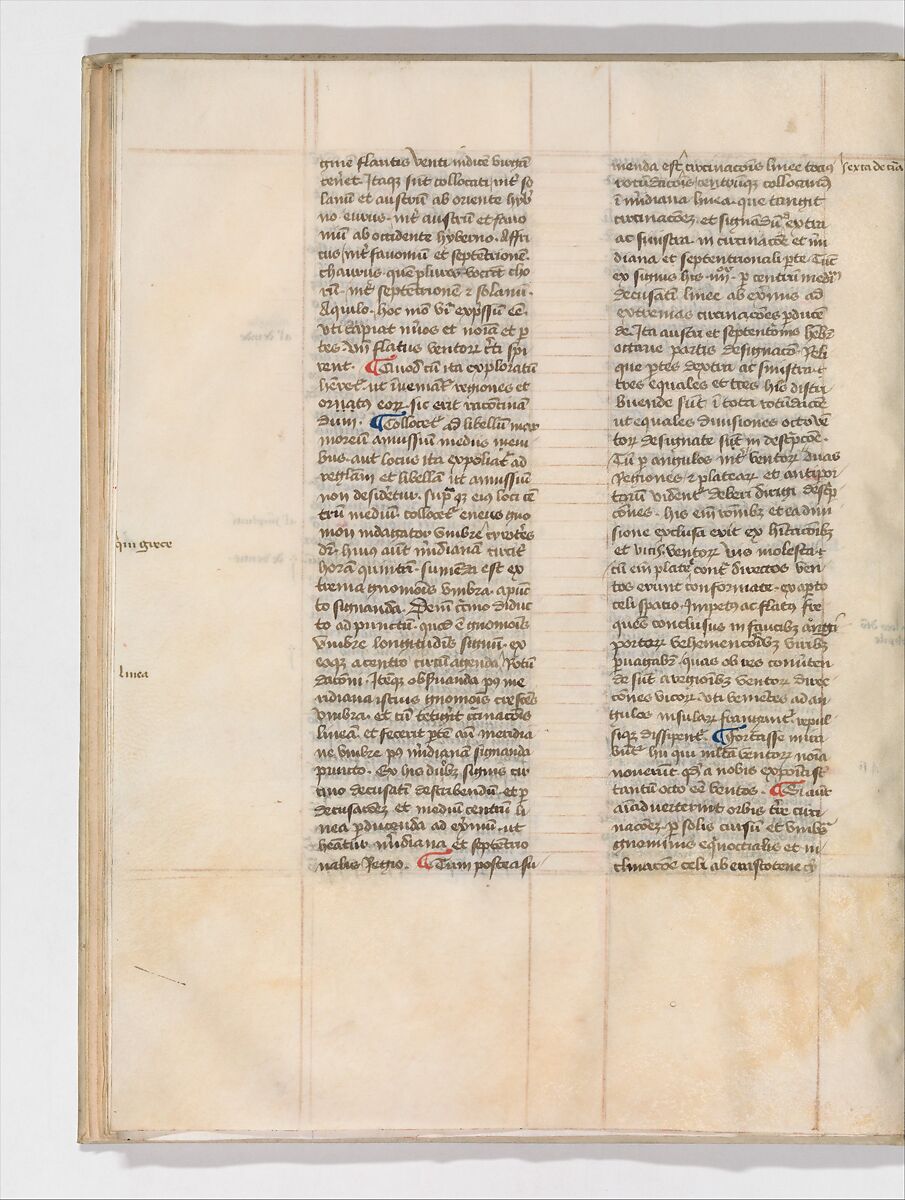 gine flantis venti indice virgam
teneret. Itaqz sunt collocati int̄ so
lanū et austrū ab oriente hyb̄
no eurus. int̄ austrū et favo
niū ab occidente hyberno. Affri
cus int̄ favoniū et septētrionē.
chaurus quē plures vocāt cho
rū. int̄ septētrionē z solanū.
Aquilo. hoc mō vr̄ exp̄ssū eē
vti capiat nūos et noīa et p
tes vn̄ flatus ventoꝝ c̄ti spi
rent. ¶ Quod cū ita exploratū
heret̄. ut īveniāt̄ regiones et
ortus eoꝝ. sic erit racōcinan
dum. ¶ Collocet̄ ad libellū mar
moreū amussiū mediis meni
bus. aut locus ita expoliat̄ ad
regulam et libellā ut amussiū
non desideret̄. supqz eius loci cē
trū mediū collocet̄ eneus gno
mon indagator umbre
dr̄. huius aūt m̄idianā circit̄
horā quintā. sumēda est ex
trema gnomonis vmbra. a pūc
to signanda. Deinde circino diduc
to ad punctū. quod ē gnomonis
vmbre longitudinis signū. ex
eoqz a centro circūagenda rotū
dationis. Itēqz obs̄uanda p9 me
ridiana istius gnomonis crescens
vmbra. et cū tetigerit circinacōis
lineā. et fecerit pt̄e aūt meridia
ne vmbre p9 m̄idianā signanda
puncto. Ex his duobz signis cir
cino decusatī describendū. et p
decusacōez et mediū centrū li
nea perducenda ad extremū. ut
heatur m̄idiana et septētrio
nalis regio. ¶ Tum postea su
menda est circinacōis linee tocius
rotūdacōis centrūqz collocandū
ī m̄idiana linea. que tangit
circinacōez. et signandū ex̄tra
ac sinistra. in circinacōe et m̄i
diana et septentrionali pt̄e. Tūc
ex signis his. p centrū mediū
decusatī linee ab ex̄mis ad
extremas circinacōes p̄ducē
de. Ita austri et septentriōis hebit̄
octave partis designacō. reli
que p̄tes dextra ac sinistra. t
tres equales et tres his distri
buende sūt ī tota rotūdacōe
ut equales divisiones octo vē
toꝝ designate sūt in descripcōe.
Tū p angulos int̄ ventoꝝ duas
regiones z platearū et antipor
torū vident̄ deberi dirigi descrip
cōnes. his em̄ rōnibz et ea divi
sione exclusa erit ex hītacōibz
et vicis ventoꝝ vis molesta. t
cū em̄ platee contra directos ven
tos erunt conformate. ex apto
celi spatio. Impetus ac flatus fre
quēs conclusus in faucibz angi
portorū vehemenciobz viribz
p̄vagabit̄. quas ob res cōverten
de sūt a regiōibz ventoꝝ direc
cōnes vicoꝝ. vti venientes ad an
gulos insularū frangant̄. repul
siqz dissipent̄. ¶ Fortasse mira
bunt̄ hii qui m̄lta ventoꝝ noīa
noverunt qd̄ a nobis expositi st̄
tantū octo eē ventos. ¶ Si aūt
aīadverterint orbis tr̄e circi
nacōez. p solis cursū et vmbras
gnominis equoctialis et in
clinacōe celi ab eristotene cy
sexta decīa
qui grece
linea